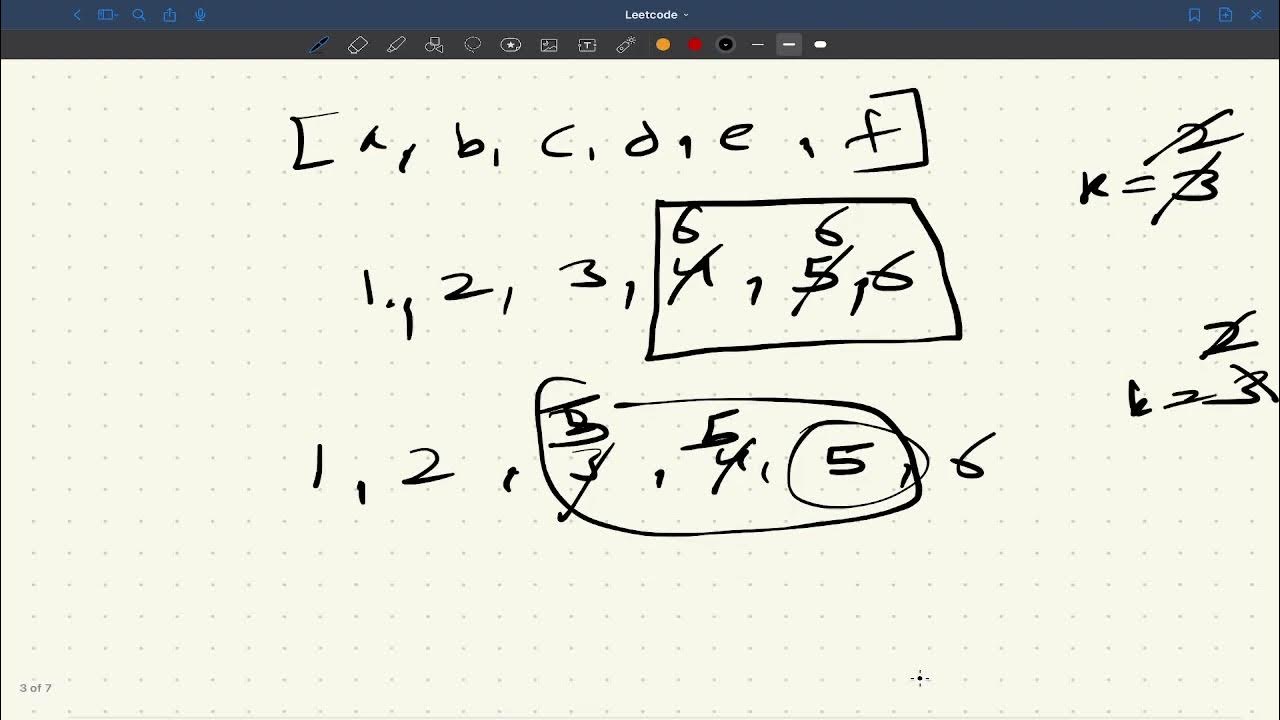 Leetcode
[a, b, c, d, e, f]
2
k = 3
6 6
1, 2, 3, 4, 5, 6
2
k = 3
5 5
1, 2, 3, 4, 5, 6
3 of 7